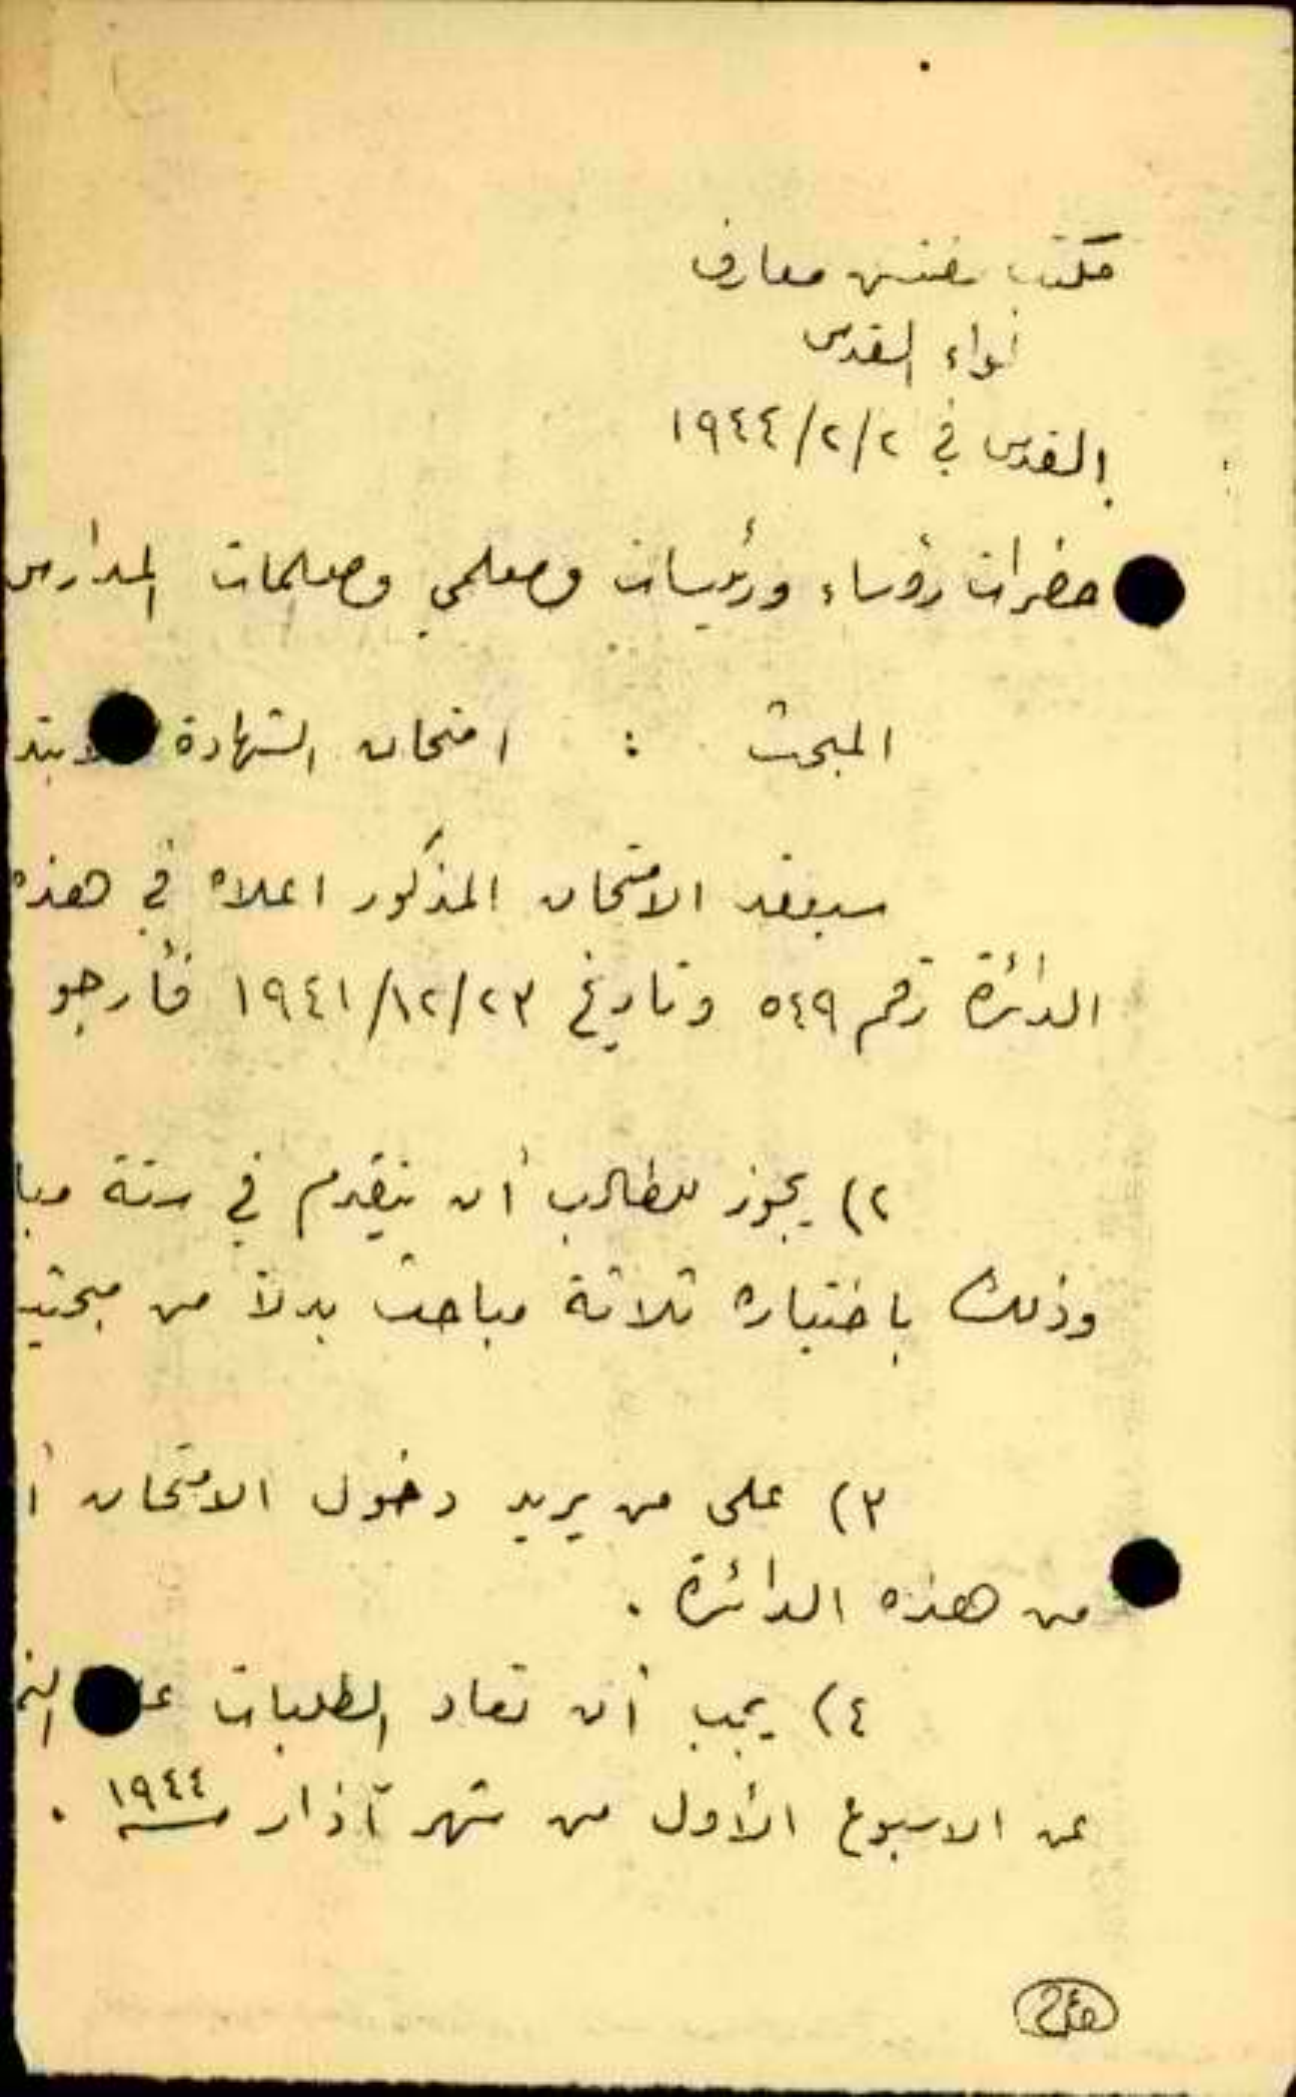 مكتب مفتش معارف
لواء القدس
القدس في ٢/٢/١٩٤٤
حضرات رؤساء ورئيسات ومعلمي ومعلمات المدارس
المبحث : امتحان الشهادة الابتد
سيعقد الامتحان المذكور اعلاه في هذه
الدائرة رقم ٥٤٩ وتاريخ ٢٣/١٢/١٩٤١ فأرجو
٢) يجوز للطالب أن يتقدم في ستة مبا
وذلك باختياره ثلاثة مباحث بدلاً من مبحثين
٣) على من يريد دخول الامتحان أ
من هذه الدائرة .
٤) يجب أن تعاد الطلبات على الن
عن الاسبوع الأول من شهر آذار سنة ١٩٤٤ .